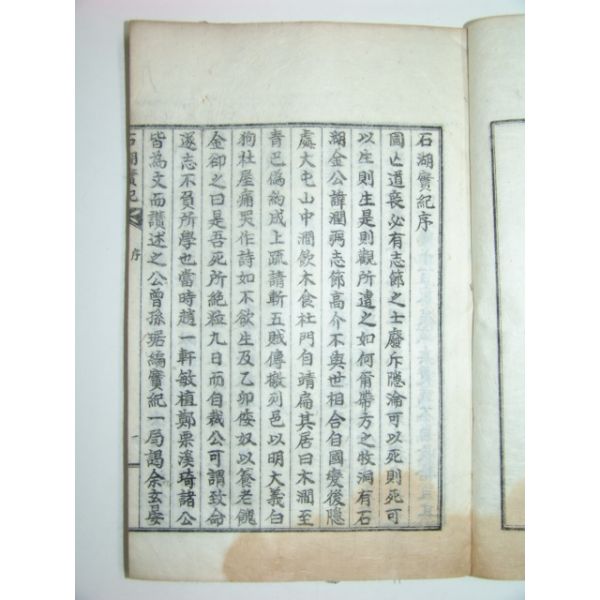 石湖實紀序
國亡道喪必有志節之士廢斥隱淪可以死則死可
以生則生是則觀所遭之如何爾帶方之牧洞有石
湖金公諱潤弼志節高介不與世相合自國變後隱
處大屯山中澗飮木食杜門自靖扁其居曰木澗至
靑巴僞約成上疏請斬五賊傳檄列邑以明大義白
狗社屋痛哭作詩如不欲生及乙卯倭奴以養老餽
金卻之曰是吾死所絶粒九日而自裁公可謂致命
遂志不負所學也當時趙一軒敏植鄭栗溪琦諸公
皆爲文而讚述之公曾孫琚編實紀一局謁余玄晏
石湖實紀
序
一